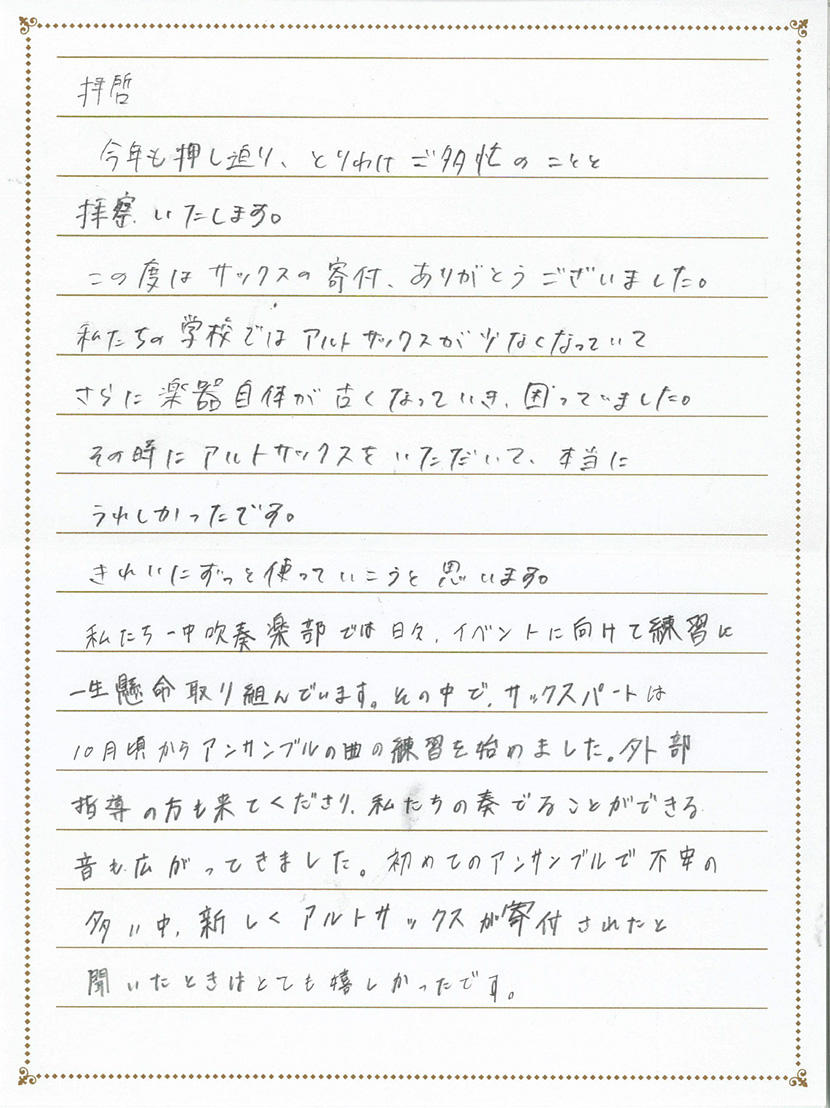 拝啓
今年も押し迫り、とりわけご多忙のことと
拝察いたします。
この度はサックスの寄付、ありがとうございました。
私たちの学校ではアルトサックスが少なくなっていて
さらに楽器自体が古くなっていき、困っていました。
その時にアルトサックスをいただいて、本当に
うれしかったです。
きれいにずっと使っていこうと思います。
私たち一中吹奏楽部では日々、イベントに向けて練習に
一生懸命取り組んでいます。その中で、サックスパートは
10月頃からアンサンブルの曲の練習を始めました。外部
指導の方も来てくださり、私たちの奏でることができる
音も広がってきました。初めてのアンサンブルで不安の
多い中、新しくアルトサックスが寄付されたと
聞いたときはとても嬉しかったです。